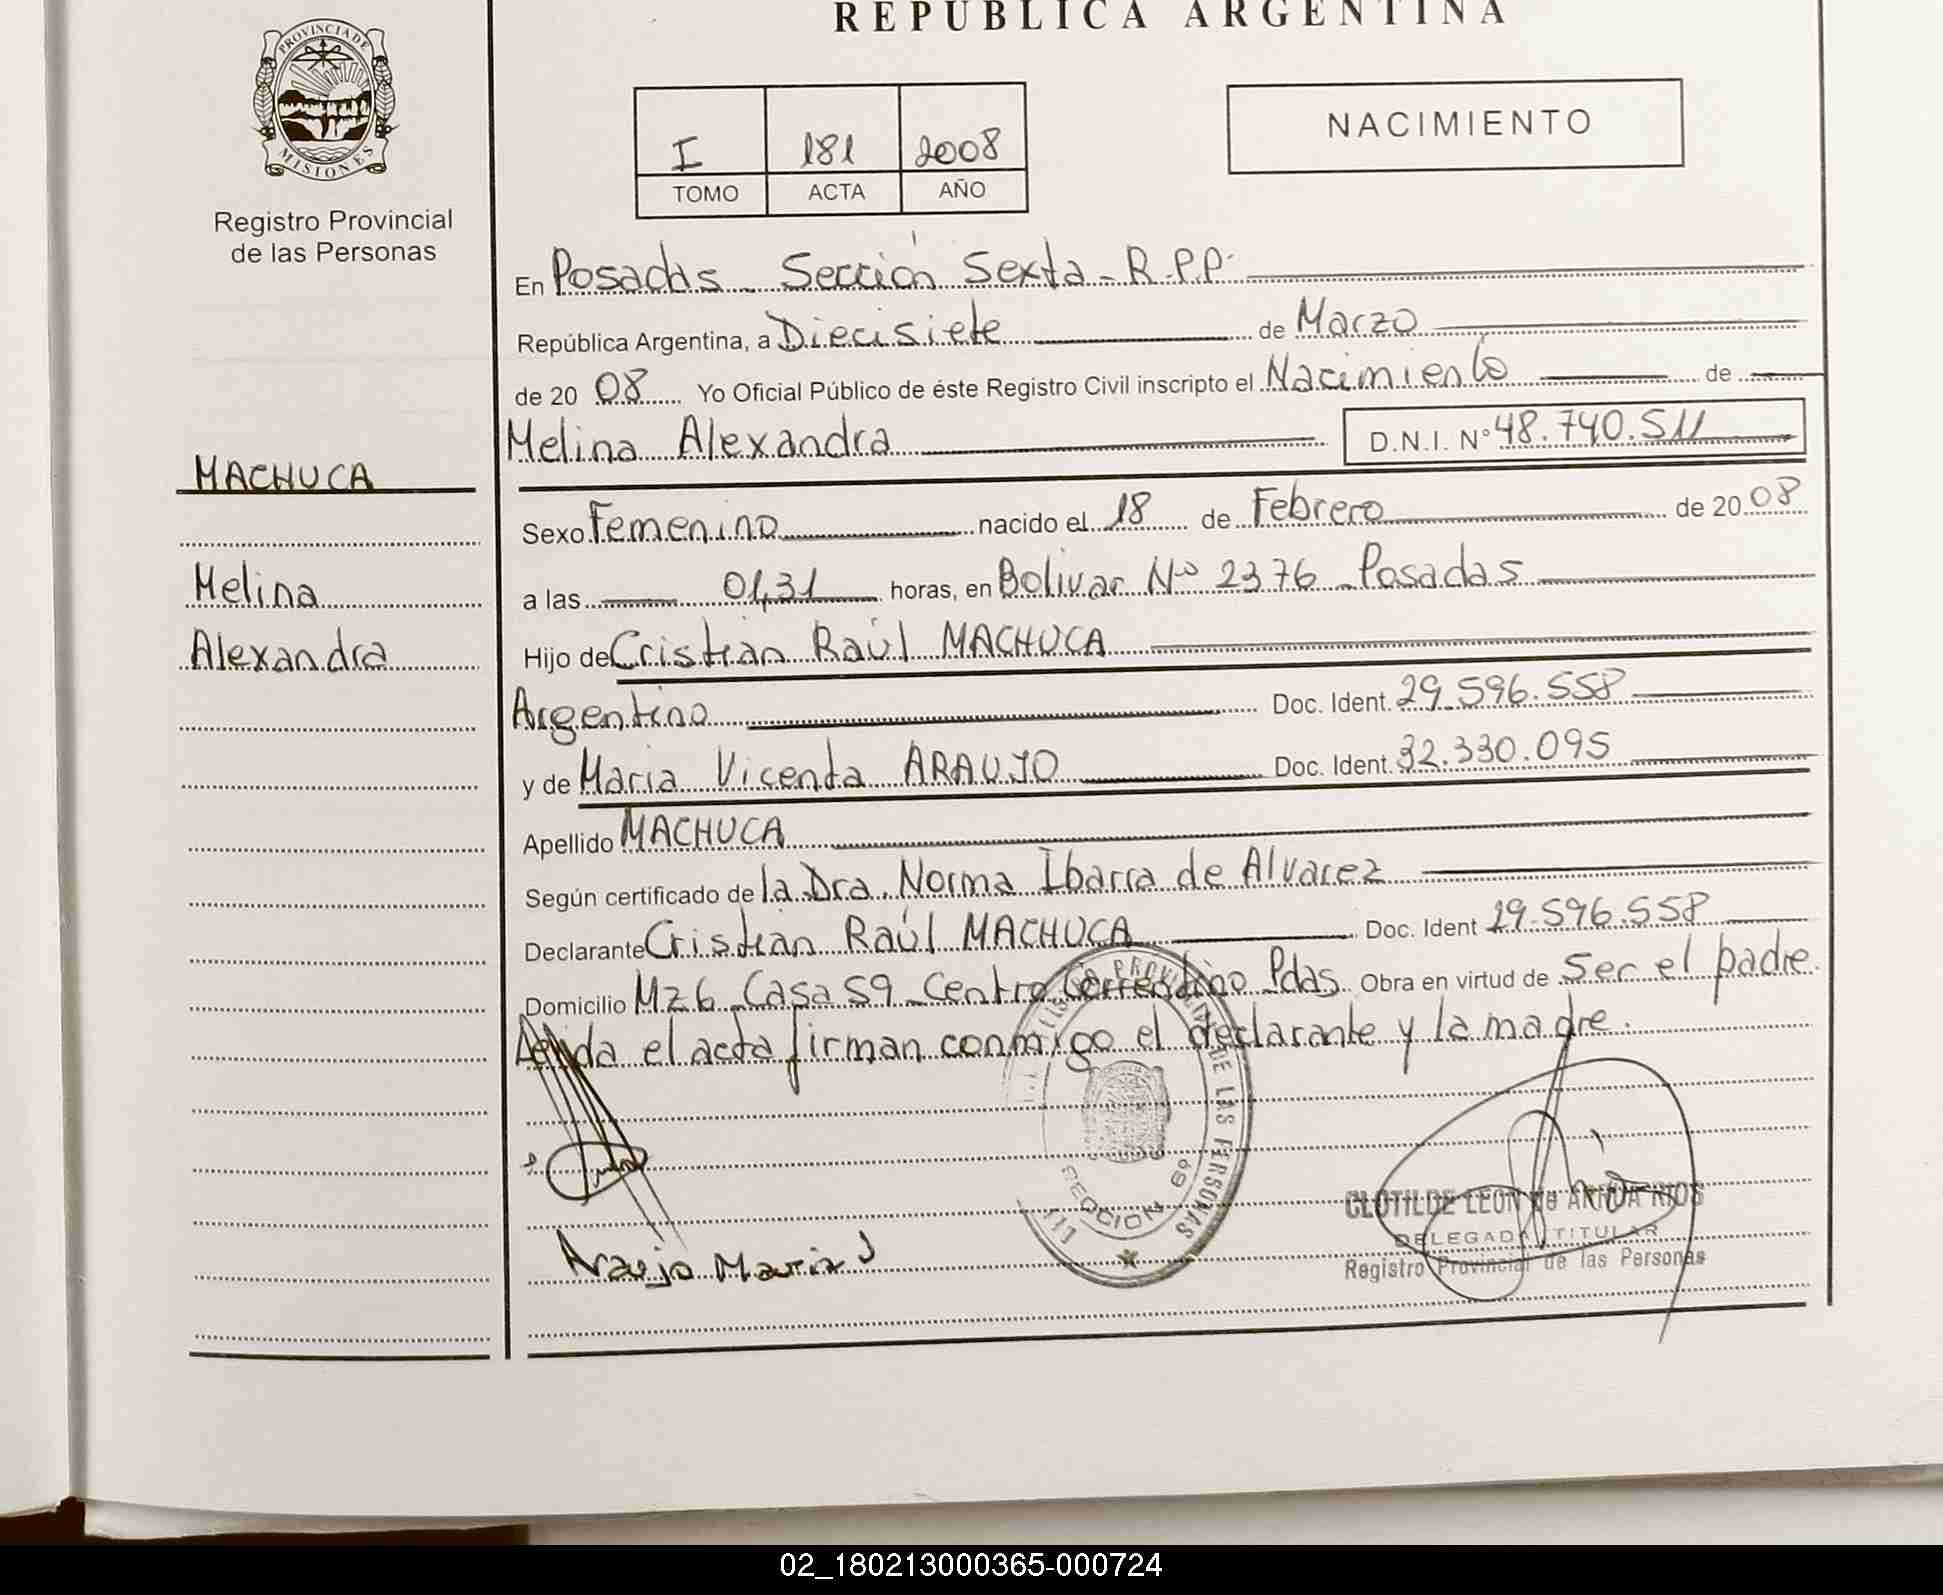 REPUBLICA ARGENTINA
PROVINCIA DE
MISIONES
Registro Provincial
de las Personas
I 181 2008
TOMO ACTA AÑO
NACIMIENTO
En Posadas - Sección Sexta - R.P.P.
República Argentina, a Diecisiete de Marzo
de 20 08 Yo Oficial Público de éste Registro Civil inscripto el Nacimiento de
Melina Alexandra D.N.I. N° 48.740.511
MACHUCA
Sexo Femenino nacido el 18 de Febrero de 20 08
Melina
a las 01,31 horas, en Bolivar Nº 2376 - Posadas
Alexandra
Hijo de Cristian Raúl MACHUCA
Argentino Doc. Ident. 29.596.558
y de Maria Vicenta ARAUJO Doc. Ident. 32.330.095
Apellido MACHUCA
Según certificado de la Dra. Norma Ibarra de Alvarez
Declarante Cristian Raúl MACHUCA Doc. Ident 29.596.558
Domicilio Mz 6 - Casa 59 - Centro Pdas. Obra en virtud de Ser el padre.
Leida el acta firman conmigo el declarante y la madre.
DE LAS PERSONAS
SECCION 6ª
Araujo Maria
CLOTILDE LEON RIOS
DELEGADA TITULAR
Registro Provincial de las Personas
02_180213000365-000724